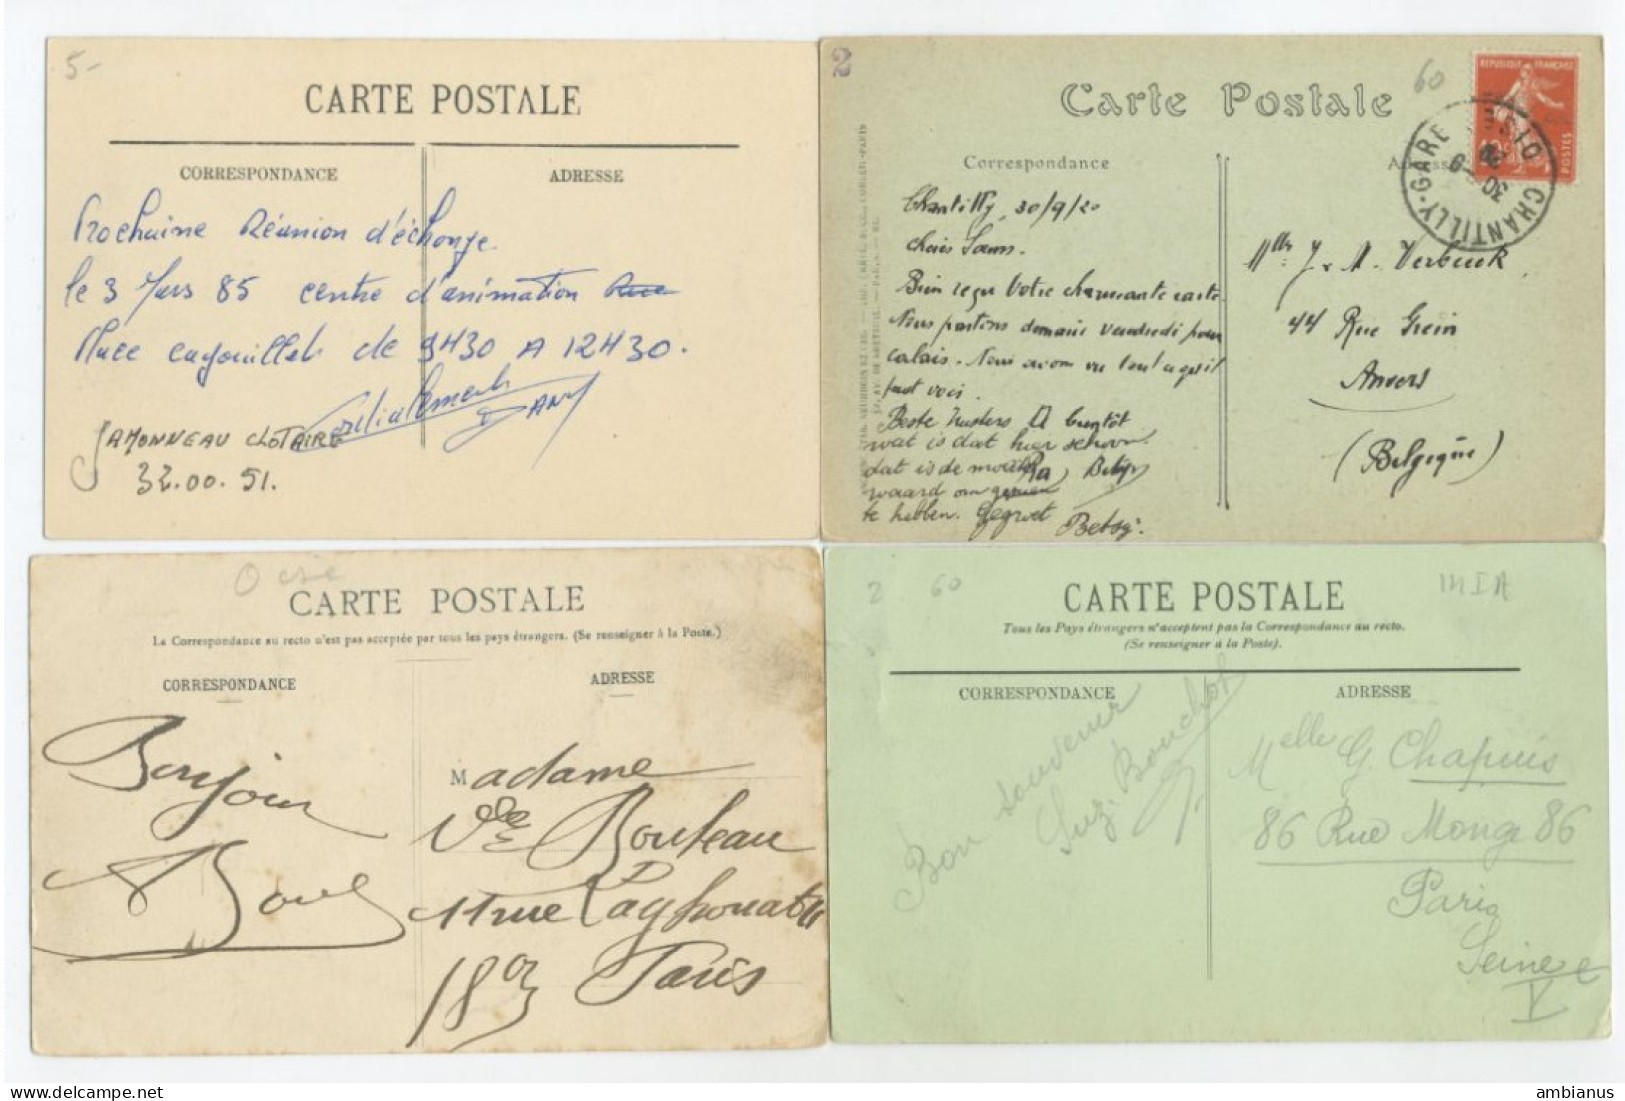 5-
CARTE POSTALE
CORRESPONDANCE
ADRESSE
Prochaine Réunion d'échange
le 3 Mars 85 centre d'animation Rue
Place cagouillet de 9H30 A 12H30.
Cordialement
DANY
JAMONNEAU CLOTAIRE
32.00.51.
2
60
Carte Postale
Correspondance
REPUBLIQUE FRANÇAISE
POSTES
CHANTILLY-GARE
30-9
20
Chantilly, 30/9/20
Bien reçu votre charmante carte
Nous partons demain vendredi pour
Calais. Nous avons vu tout ce qu'il
faut voir.
Beste Zusters A bientôt
wat is dat hier schoon
dat is de moeite
waard om gezien
te hebben. Gegroet
Betsy.
Mlles J. & A. Verbuck
44 Rue Grein
Anvers
(Belgique)
Oise
CARTE POSTALE
La Correspondance au recto n'est pas acceptée par tous les pays étrangers. (Se renseigner à la Poste.)
CORRESPONDANCE
ADRESSE
Bonjour
Madame
Vve Bouteau
11 rue
Paris
2
60
CARTE POSTALE
Tous les Pays étrangers n'acceptent pas la Correspondance au recto.
(Se renseigner à la Poste).
CORRESPONDANCE
ADRESSE
Bon souvenir
Suz. Bouchot
Melle G. Chapuis
86 Rue Monge 86
Paris
Seine
V
ambianus